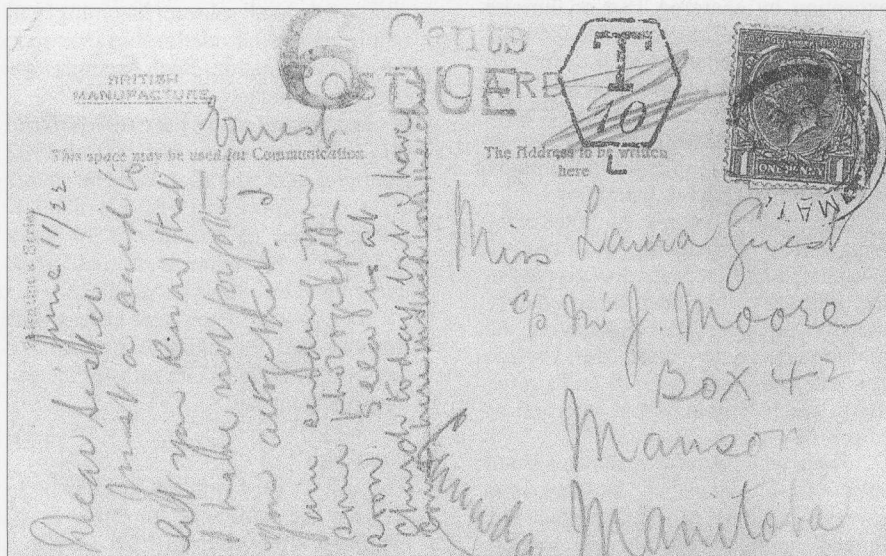 6 Cents
POSTAGE
BRITISH
MANUFACTURE
POST CARD
T
10
L
1 ONE PENNY 1
MAT,
Ernest
This space may be used for Communication
The Address to be written
here
Valentine's Series
June 11/22
Dear Sister
Just a card to
let you know that
I have not forgotten
you altogether. I
am sending you
some photographs
soon. Bella is at
Church today but I have
Miss Laura Guest
c/o Mr J. Moore
Box 42
Manson
Manitoba
Canada